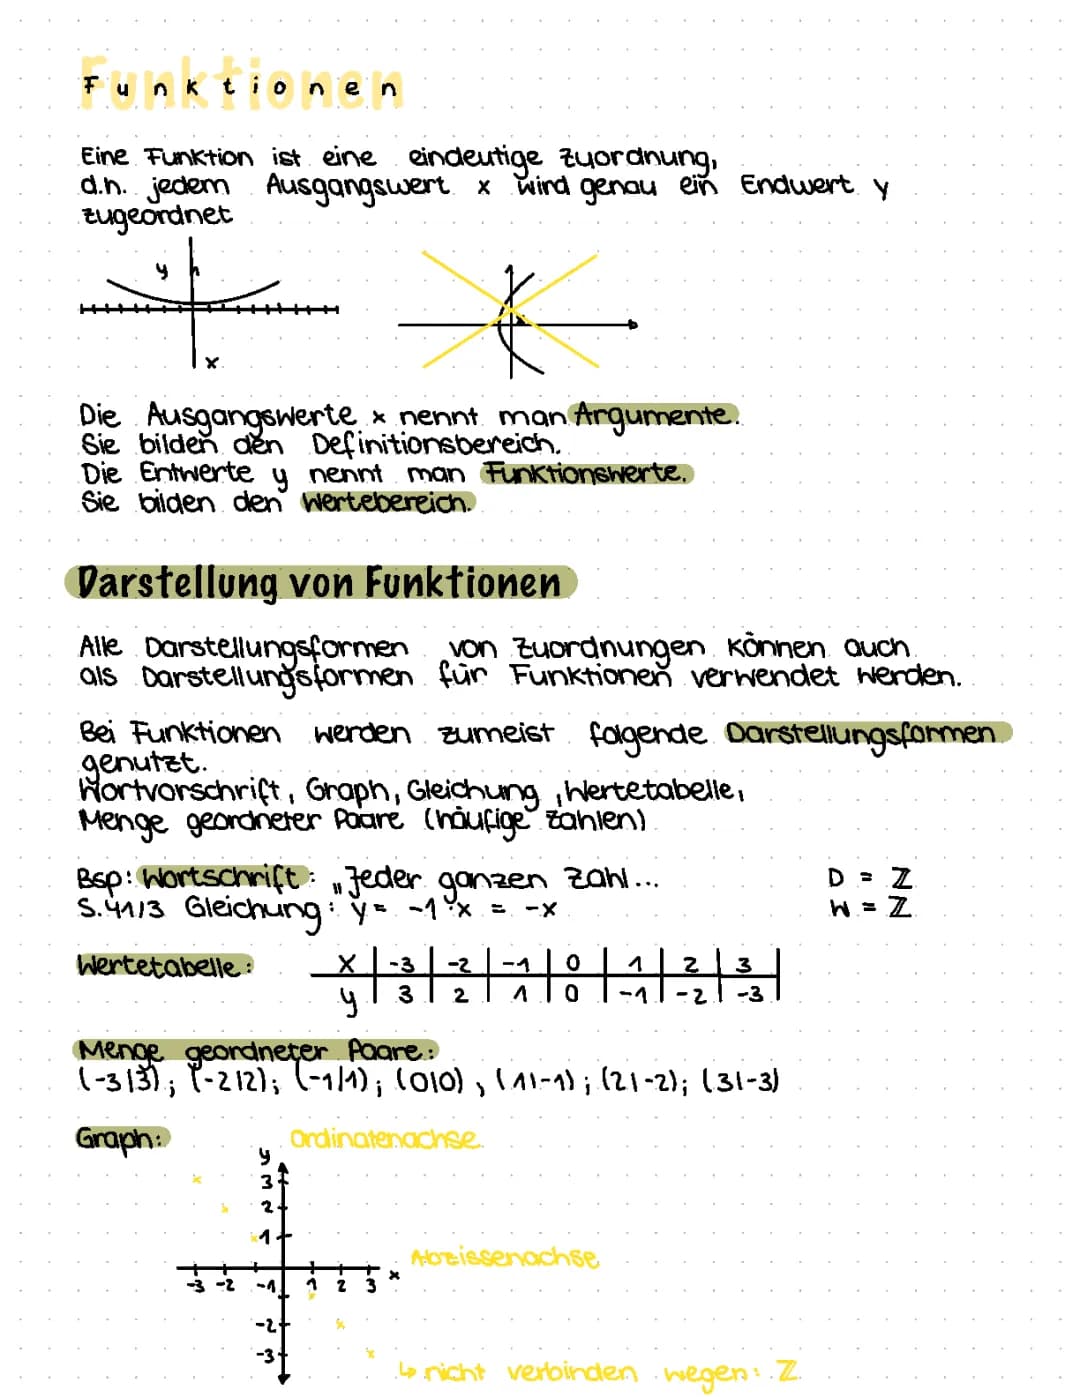 Funktionen
Eine Funktion ist eine eindeutige Zuordnung,
d.h. jedem Ausgangswert x wird genau ein Endwert y
zugeordnet
y
x
Die Ausgangswerte x nennt man Argumente.
Sie bilden den Definitionsbereich.
Die Entwerte y nennt man Funktionswerte.
Sie bilden den Wertebereich.
Darstellung von Funktionen
Alle Darstellungsformen von Zuordnungen können auch
als Darstellungsformen für Funktionen verwendet werden.
Bei Funktionen werden zumeist folgende Darstellungsformen
genutzt.
Wortvorschrift, Graph, Gleichung, Wertetabelle,
Menge geordneter Paare (häufige Zahlen)
Bsp: Wortschrift: „Jeder ganzen Zahl... D = ℤ
S.41/3 Gleichung: y = -1·x = -x W = ℤ
Wertetabelle: x | -3 | -2 | -1 | 0 | 1 | 2 | 3 |
y | 3 | 2 | 1 | 0 | -1 | -2 | -3 |
Menge geordneter Paare:
(-3|3); (-2|2); (-1|1); (0|0), (1|-1); (2|-2); (3|-3)
Graph: Ordinatenachse
y
3
2
1
Abzissenachse
-3 -2 -1 1 2 3 x
-2
-3
↳ nicht verbinden wegen: ℤ